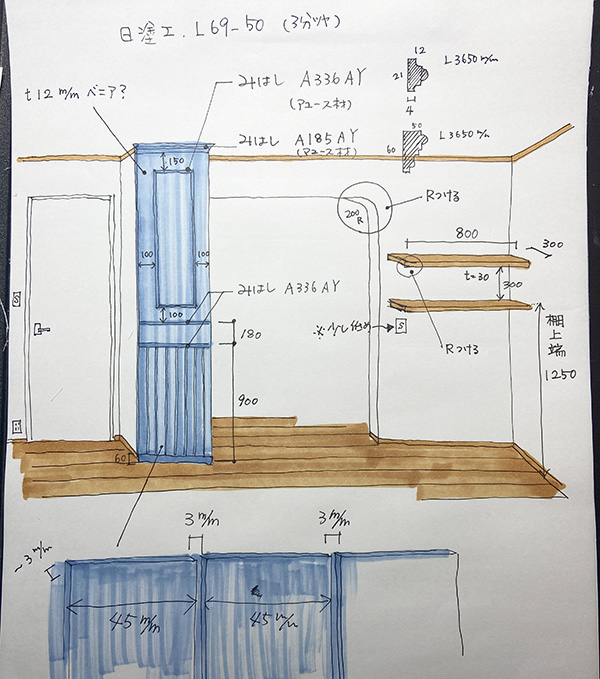 日塗工. L69-50 (3分ツヤ)
t12 m/m ベニア?
みはし A336AY
(アユース材)
12
21
4
L3650 m/m
みはし A185AY
(アユース材)
50
60
L3650 m/m
150
100
100
100
みはし A336AY
180
900
60
200
R
Rつける
800
300
t=30
300
Rつける
※少し低め
S
S
棚上端
1250
~3 m/m
3 m/m
3 m/m
45 m/m
45 m/m